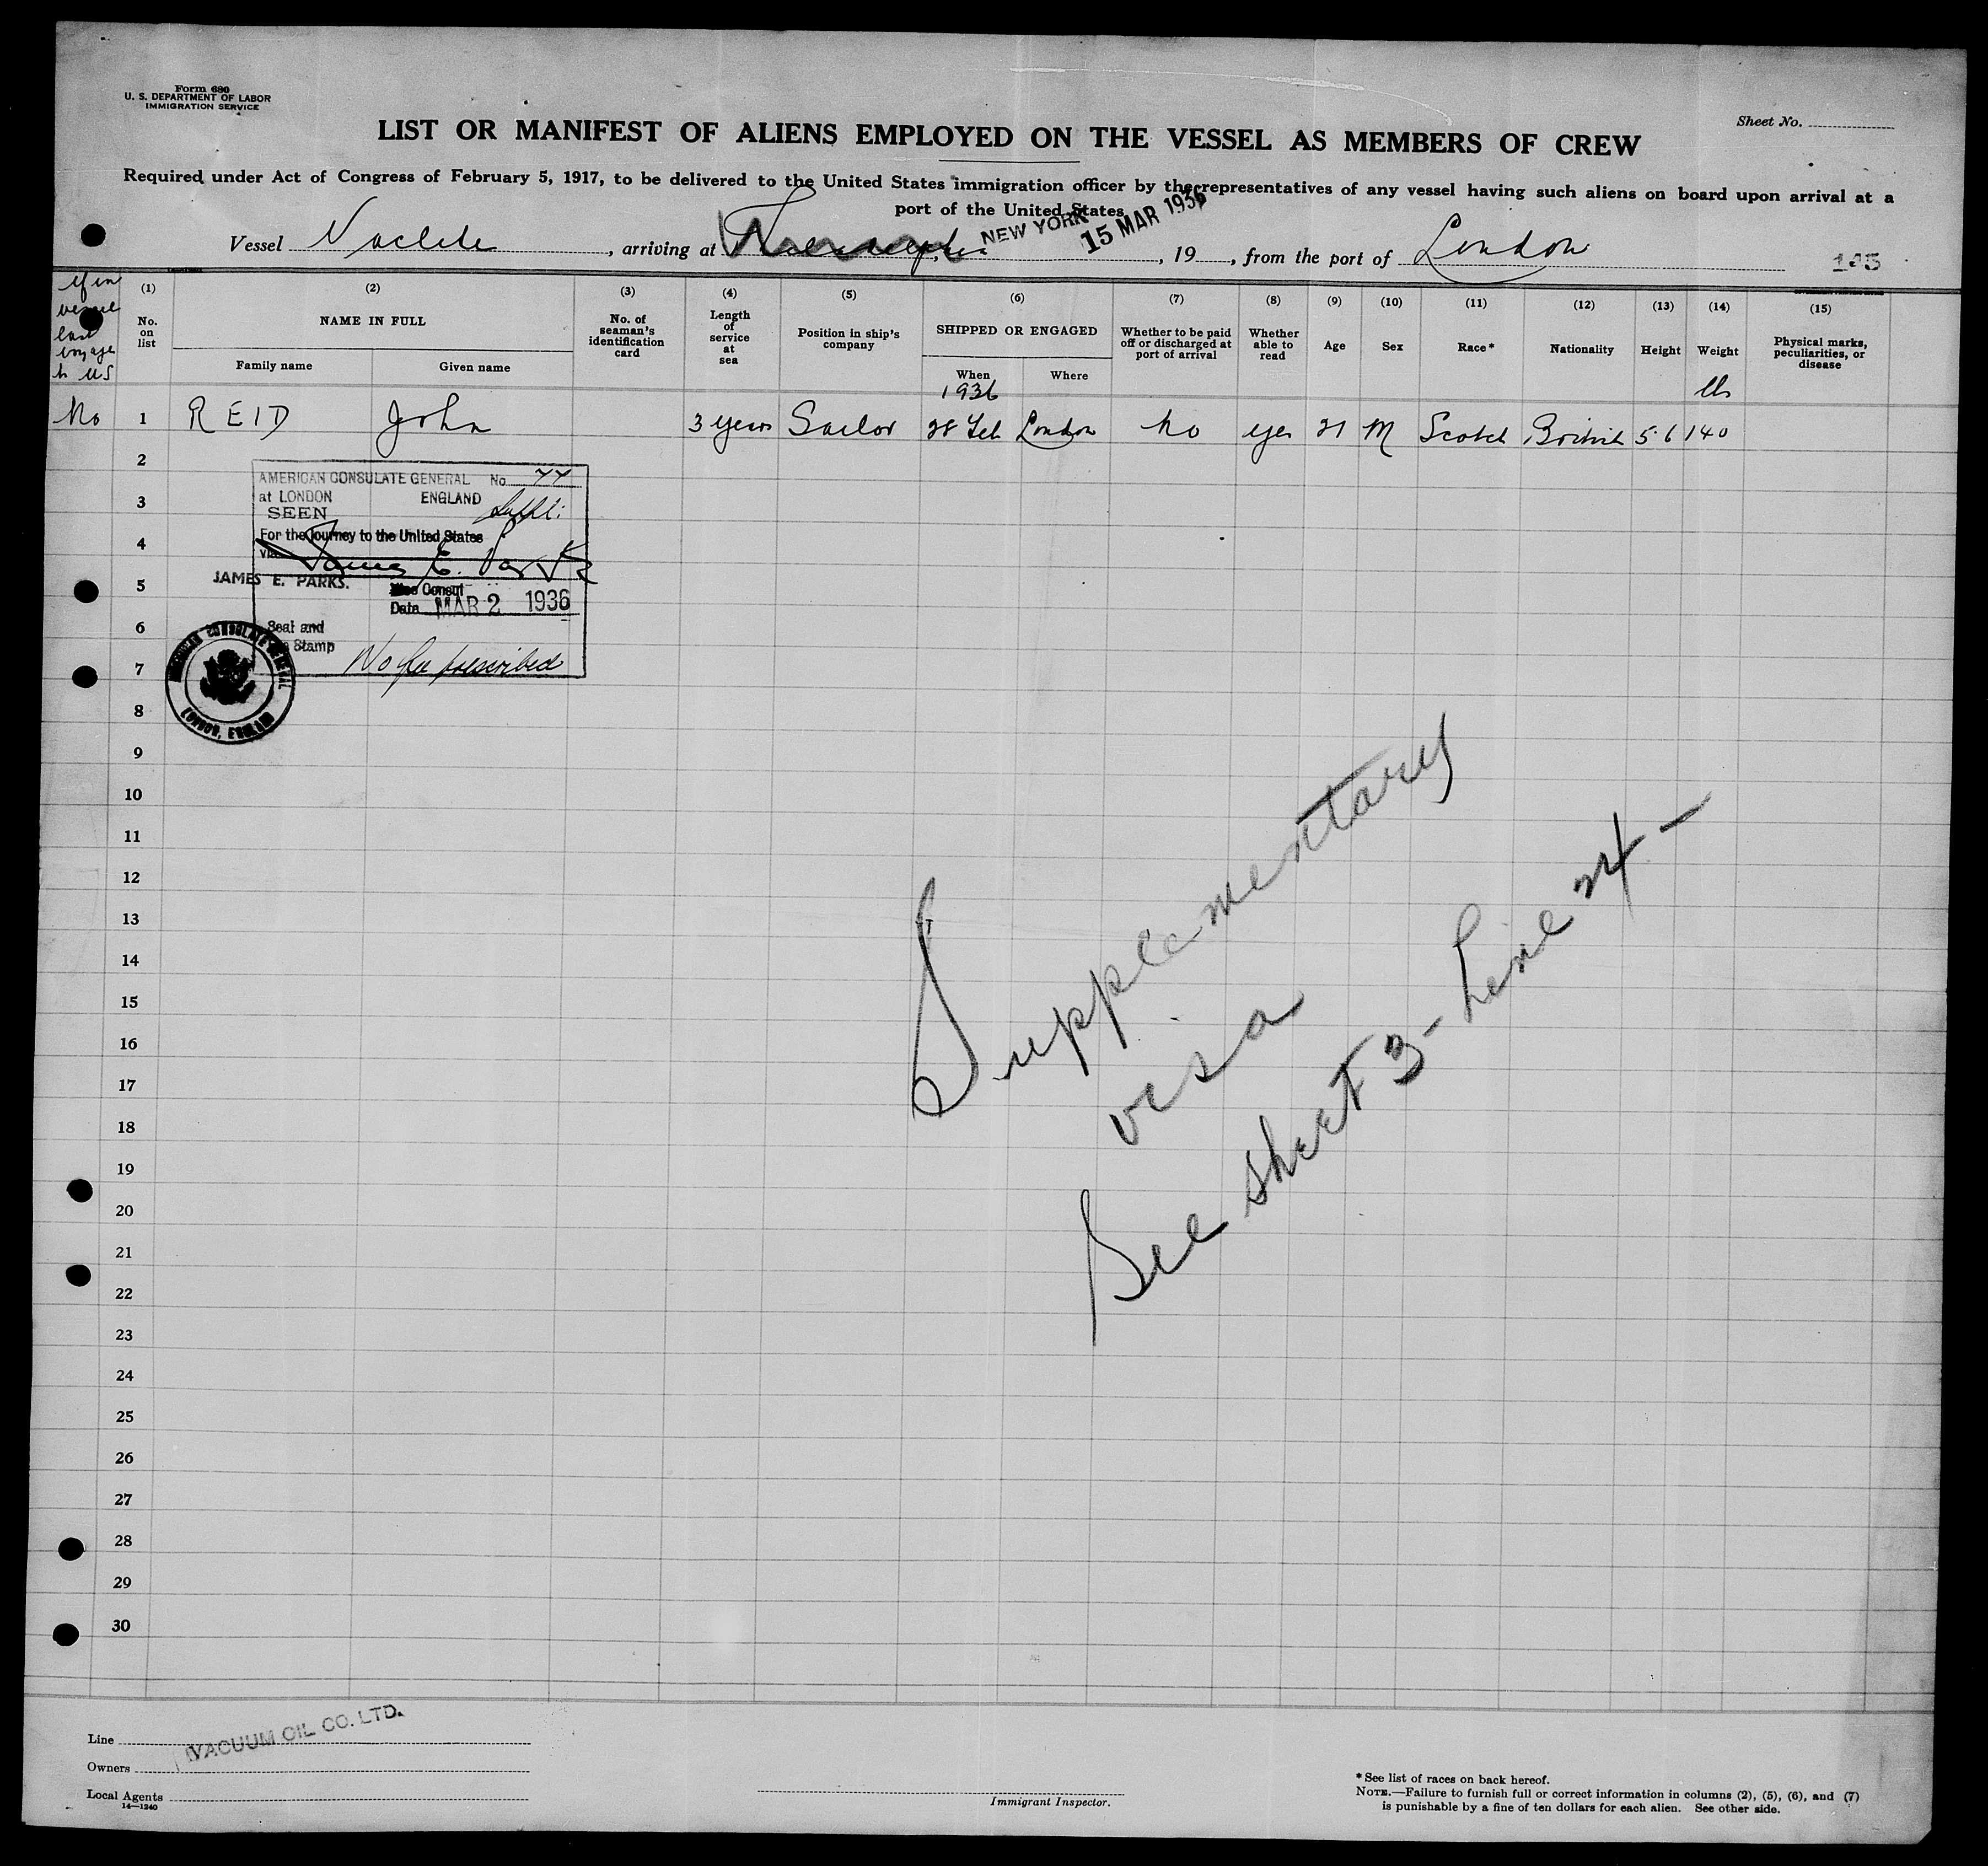 Form 680
U. S. DEPARTMENT OF LABOR
IMMIGRATION SERVICE
Sheet No.
LIST OR MANIFEST OF ALIENS EMPLOYED ON THE VESSEL AS MEMBERS OF CREW
Required under Act of Congress of February 5, 1917, to be delivered to the United States immigration officer by the representatives of any vessel having such aliens on board upon arrival at a
port of the United States
Vessel , arriving at NEW YORK 15 MAR 1936 , 19 , from the port of London
If in vessel last voyage to US
(1) No. on list
(2) NAME IN FULL
Family name Given name
(3) No. of seaman's identification card
(4) Length of service at sea
(5) Position in ship's company
(6) SHIPPED OR ENGAGED
When Where
1936
(7) Whether to be paid off or discharged at port of arrival
(8) Whether able to read
(9) Age
(10) Sex
(11) Race*
(12) Nationality
(13) Height
(14) Weight
lbs
(15) Physical marks, peculiarities, or disease
No 1 REID John 3 years Sailor 28 Feb London No yes 21 M Scotch British 5.6 140
2
3
4
5
6
7
8
9
10
11
12
13
14
15
16
17
18
19
20
21
22
23
24
25
26
27
28
29
30
AMERICAN CONSULATE GENERAL No.
at LONDON ENGLAND
SEEN
For the Journey to the United States
via
James E. Parks
JAMES E. PARKS.
Vice Consul
Date MAR 2 1936
Seal and
Stamp
No fee prescribed
AMERICAN CONSULATE GENERAL
LONDON, ENGLAND
Supplementary
visa
See sheet 3 - Line 24 -
Line
VACUUM OIL CO. LTD.
Owners
Local Agents
14—1240
Immigrant Inspector.
*See list of races on back hereof.
NOTE.—Failure to furnish full or correct information in columns (2), (5), (6), and (7)
is punishable by a fine of ten dollars for each alien. See other side.